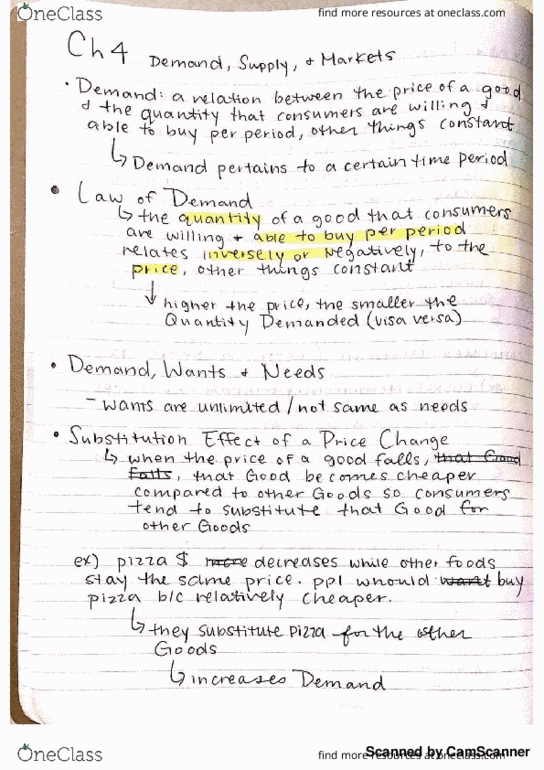 OneClass
find more resources at oneclass.com
Ch 4 Demand, Supply, + Markets
• Demand: a relation between the price of a good
+ the quantity that consumers are willing +
able to buy per period, other things constant
↳ Demand pertains to a certain time period
• Law of Demand
↳ the quantity of a good that consumers
are willing + able to buy per period
relates inversely or negatively, to the
price, other things constant
↓ higher the price, the smaller the
Quantity Demanded (visa versa)
• Demand, Wants + Needs
- wants are unlimited / not same as needs
• Substitution Effect of a Price Change
↳ when the price of a good falls, that Good
falls, that Good becomes cheaper
compared to other Goods so consumers
tend to substitute that Good for
other Goods
ex) pizza $ more decreases while other foods
stay the same price. ppl whould want buy
pizza b/c relatively cheaper.
↳ they substitute pizza for the other
Goods
↳ increases Demand
OneClass
find more resources at oneclass.com
Scanned by CamScanner